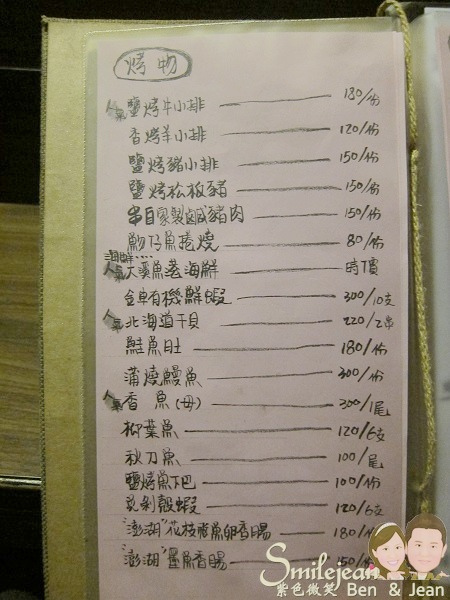 烤物
人氣 鹽烤牛小排 180/份
香烤羊小排 120/份
鹽烤豬小排 150/份
鹽烤松板豬 150/份
串自家製鹹豬肉 150/份
魩仔魚捲燒 80/份
海鮮‥‥
人氣 大溪魚港海鮮 時價
金車有機鮮蝦 300/10支
人氣 北海道干貝 220/2串
鮭魚肚 180/份
蒲燒鰻魚 300/份
人氣 香魚(母) 300/1尾
柳葉魚 120/6支
秋刀魚 100/尾
鹽烤魚下巴 100/份
乾剝殼蝦 120/6支
"澎湖"花枝飛魚卵香腸 180/份
"澎湖"墨魚香腸 150/份
Smilejean
紫色微笑 Ben & Jean